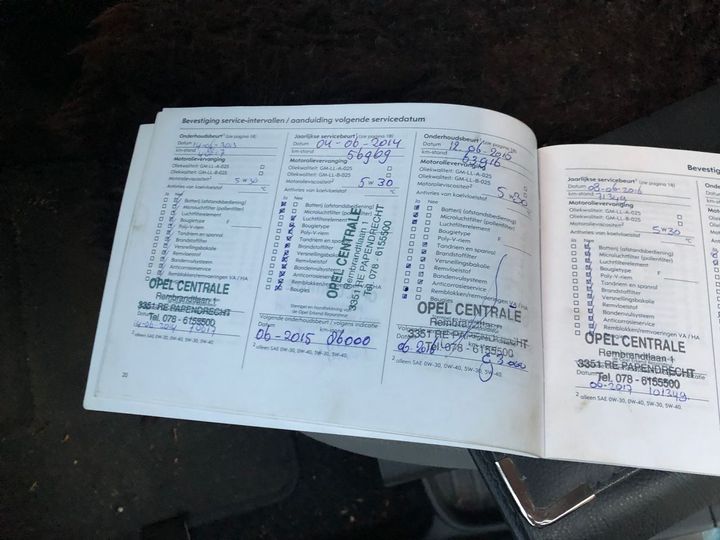 Bevestiging service-intervallen / aanduiding volgende servicedatum
Onderhoudsbeurt¹ (zie pagina 18)
Datum
km-stand
Motorolieverversing
Oliekwaliteit: GM-LL-A-025
Oliekwaliteit: GM-LL-B-025
Motorolieviscositeit² 5W30
Antivries van koelvloeistof °C
Ja Nee
Batterij (afstandsbediening)
Microluchtfilter (pollenfilter)
Luchtfilterelement
Bougietype F
Poly-V-riem
Tandriem en spanrol
Brandstoffilter
Versnellingsbakolie
Remvloeistof
Bandenvulsysteem
Anticorrosieservice
Remblokken/remvoeringen VA / HA
OPEL CENTRALE
Rembrandtlaan 1
3351 RE PAPENDRECHT
Tel. 078 - 6155500
² alleen SAE 0W-30, 0W-40, 5W-30, 5W-40.
20
Jaarlijkse servicebeurt¹ (zie pagina 18)
Datum 04-06-2014
km-stand 56969
Motorolieverversing
Oliekwaliteit: GM-LL-A-025
Oliekwaliteit: GM-LL-B-025
Motorolieviscositeit² 5W30
Antivries van koelvloeistof °C
Ja Nee
Batterij (afstandsbediening)
Microluchtfilter (pollenfilter)
Luchtfilterelement
Bougietype
Poly-V-riem
Tandriem en spanrol
Brandstoffilter
Versnellingsbakolie
Remvloeistof
Bandenvulsysteem
Anticorrosieservice
Remblokken/remvoeringen
Bougies
OPEL CENTRALE
Rembrandtlaan 1
3351 RE PAPENDRECHT
Tel. 078 - 6155500
Stempel en handtekening van
de Opel Erkend Reparateur
Volgende onderhoudsbeurt / volgens indicatie
Datum km-stand
06-2015 86000
² alleen SAE 0W-30, 0W-40, 5W-30, 5W-40.
Onderhoudsbeurt¹ (zie pagina 18)
Datum
km-stand
Motorolieverversing
Oliekwaliteit: GM-LL-A-025
Oliekwaliteit: GM-LL-B-025
Motorolieviscositeit² 5W30
Antivries van koelvloeistof °C
Ja Nee
Batterij (afstandsbediening)
Microluchtfilter (pollenfilter)
Luchtfilterelement
Bougietype F
Poly-V-riem
Tandriem en spanrol
Brandstoffilter
Versnellingsbakolie
Remvloeistof
Bandenvulsysteem
Anticorrosieservice
Remblokken/remvoeringen VA / HA
Bougies
OPEL CENTRALE
Rembrandtlaan 1
3351 RE PAPENDRECHT
Tel. 078 - 6155500
² alleen SAE 0W-30, 0W-40, 5W-30, 5W-40.
Jaarlijkse servicebeurt¹ (zie pagina 18)
Datum
km-stand 71349
Motorolieverversing
Oliekwaliteit: GM-LL-A-025
Oliekwaliteit: GM-LL-B-025
Motorolieviscositeit² 5W30
Antivries van koelvloeistof °C
Ja Nee
Batterij (afstandsbediening)
Microluchtfilter (pollenfilter)
Luchtfilterelement
Bougietype F
Poly-V-riem
Tandriem en spanrol
Brandstoffilter
Versnellingsbakolie
Remvloeistof
Bandenvulsysteem
Anticorrosieservice
Remblokken/remvoeringen VA / HA
OPEL CENTRALE
Rembrandtlaan 1
3351 RE PAPENDRECHT
Tel. 078 - 6155500
06-2017 101349
² alleen SAE 0W-30, 0W-40, 5W-30, 5W-40.